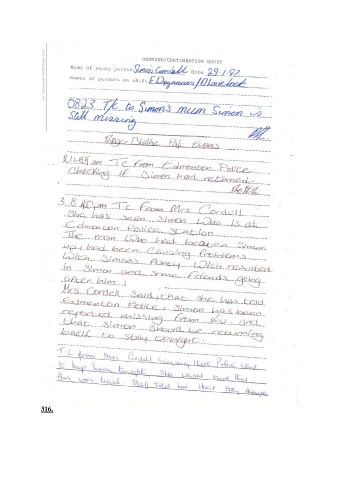 RUNNING/CONTINUATION SHEET
Name of young person Simon Cordell Date 29-1-97
Names of persons on shift
08.23 T/c to Simon's mum Simon is
still missing
11.59 am T.C From Edmonton Police
Checking if Simon had returned.
3.810pm T.C From Mrs Cordell
She has seen Simon who is at
Edmonton Police Station
The man who had beaten Simon
up, had been causing problems
With Simons Which resulted
in Simon and some friends going
after him.
Mrs Cordell, said that she has told
Edmonton Police, Simon has been
reported missing from and
that Simon should be returning
back to stay tonight.
T.C from Mrs Cordell saying that Police want
to keep Simon tonight, She
this was told her that they
316.